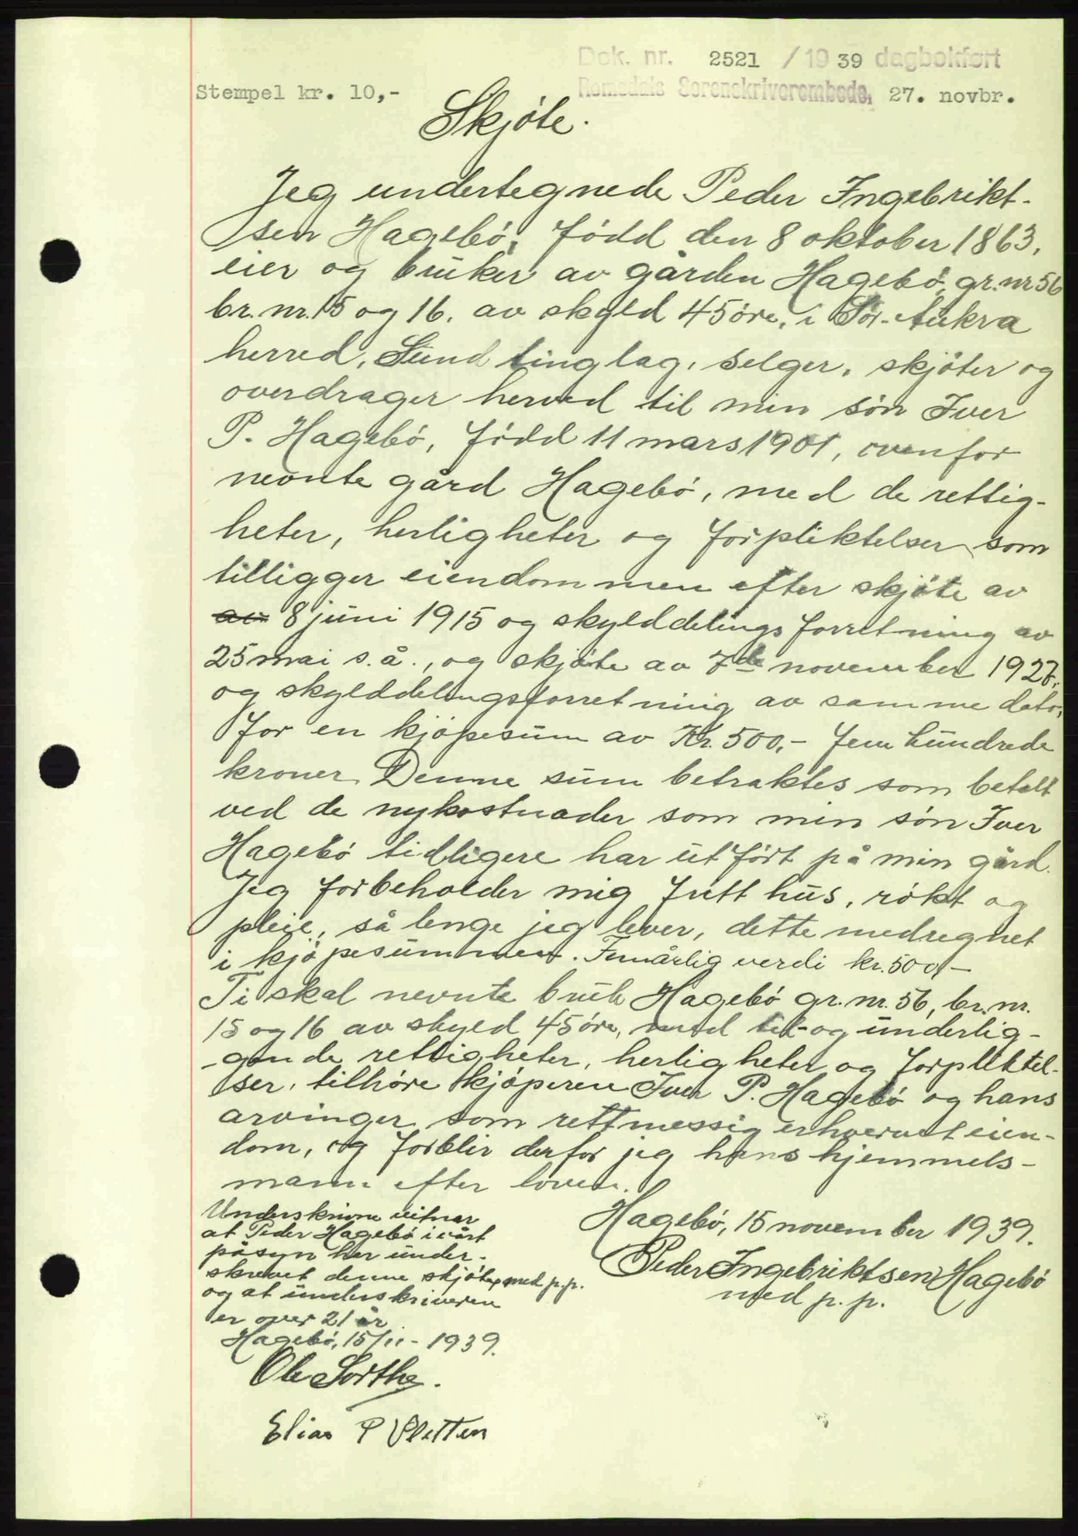 Dok. nr. 2521 / 19 39 dagbokført
Stempel kr. 10,- Romsdals Sorenskriverembede, 27. novbr.
Skjøte.
Jeg undertegnede Peder Ingebrikt-
sen Hagebø, født den 8 oktober 1863,
eier og bruker av gården Hagebø, gr. nr 56
br. nr. 15 og 16. av skyld 45 øre, i Sør-Aukra
herred, Sund tinglag, selger, skjøter og
overdrager herved til min søn Iver
P. Hagebø, født 11 mars 1901, ovenfor
nevnte gård Hagebø, med de rettig-
heter, herligheter og forpliktelser som
tilligger eiendommen efter skjøte av
av 8 juni 1915 og skylddelingsforretning av
25 mai s. å., og skjøte av 7de november 1927,
og skylddelingsforretning av samme dato,
for en kjøpesum av Kr. 500,- fem hundrede
kroner. Denne sum betraktes som betalt
ved de nykostnader som min søn Iver
Hagebø tidligere har utført på min gård.
Jeg forbeholder mig fritt hus, røkt og
pleie, så lenge jeg lever, dette medregnet
i kjøpesummen. Femårlig verdi kr. 500,-
Ti skal nevnte bruk Hagebø gr. nr. 56, br. nr.
15 og 16 av skyld 45 øre, med til- og underlig-
gende rettigheter, herligheter og forpliktel-
ser, tilhøre kjøperen Iver P. Hagebø og hans
arvinger som rettmessig erhvervet eien-
dom, og forblir derfor jeg hans hjemmels-
mann efter loven.
Hagebø, 15 november 1939.
Peder Ingebriktsen Hagebø
med p. p.
Underskrivne vitner
at Peder Hagebø i vårt
påsyn har under-
skrevet denne skjøte, med p. p.
og at underskriveren
er over 21 år
Hagebø, 15/11 - 1939.
Ole Sorthe.
Elias P Sletten